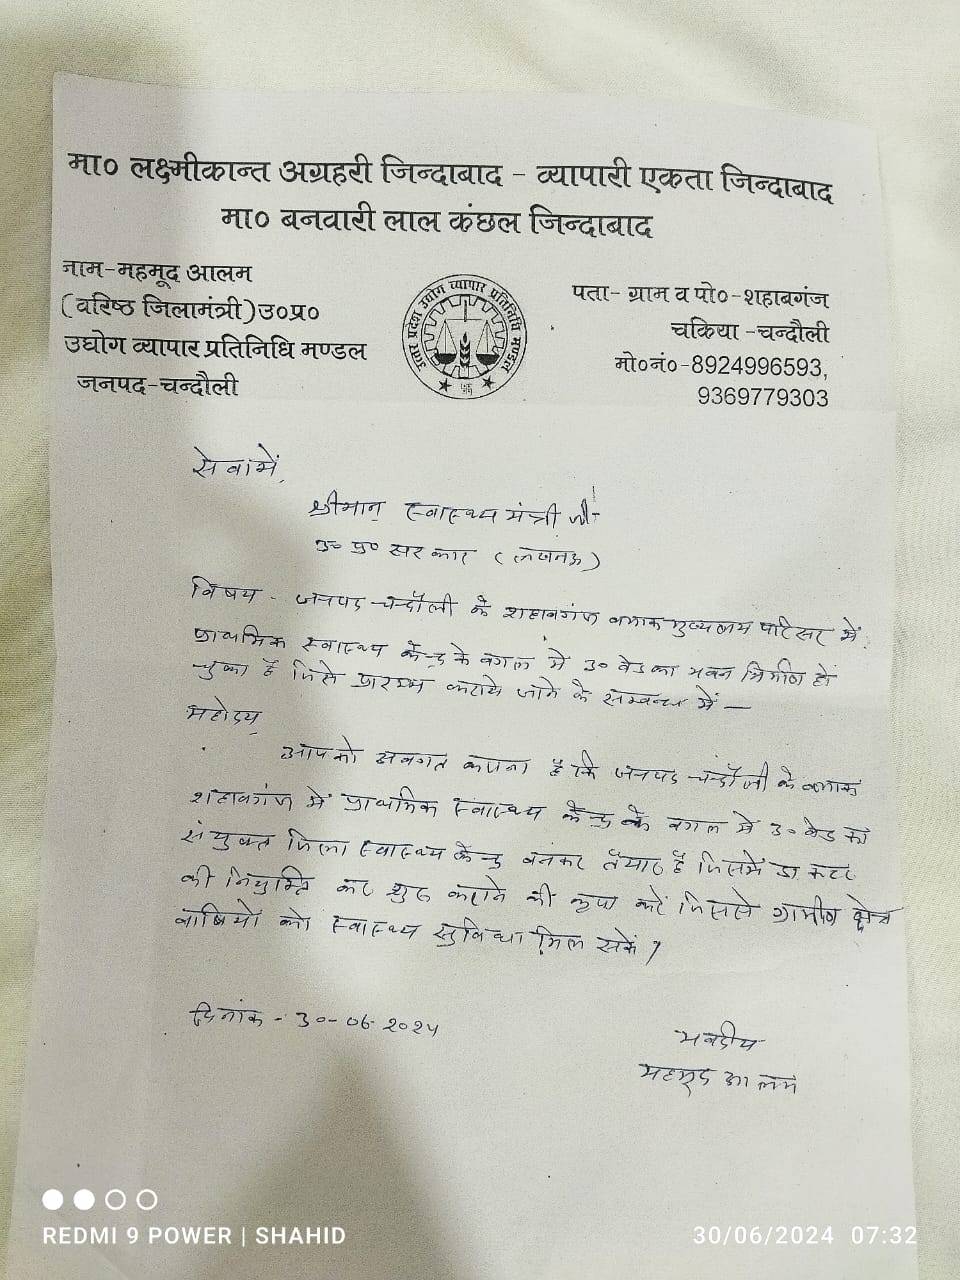 मा० लक्ष्मीकान्त अग्रहरी जिन्दाबाद - व्यापारी एकता जिन्दाबाद
मा० बनवारी लाल कंछल जिन्दाबाद
नाम-महमूद आलम
(वरिष्ठ जिलामंत्री)उ०प्र०
उद्योग व्यापार प्रतिनिधि मण्डल
जनपद-चन्दौली
उत्तर प्रदेश उद्योग व्यापार प्रतिनिधि मण्डल
पता- ग्राम व पो०-शहाबगंज
चकिया -चन्दौली
मो०नं०-8924996593,
9369779303
सेवामें,
श्रीमान् स्वास्थ्य मंत्री जी
उ० प्र० सरकार (लखनऊ)
विषय - जनपद चन्दौली के शहाबगंज ब्लाक मुख्यालय परिसर में
प्राथमिक स्वास्थ्य केन्द्र के बगल में 30 बेड का भवन निर्माण हो
चुका है जिसे प्रारम्भ कराये जाने के सम्बन्ध में —
महोदय,
आपको अवगत कराना है कि जनपद चन्दौली के ब्लाक
शहाबगंज में प्राथमिक स्वास्थ्य केन्द्र के बगल में 30 बेड का
संयुक्त जिला स्वास्थ्य केन्द्र बनकर तैयार है जिसमें डाक्टर
की नियुक्ति कर शुरु कराने की कृपा करें जिससे ग्रामीण क्षेत्र
वासियों को स्वास्थ्य सुविधा मिल सकें।
दिनांक - 30-06-2024
भवदीय
महमूद आलम
REDMI 9 POWER | SHAHID
30/06/2024 07:32